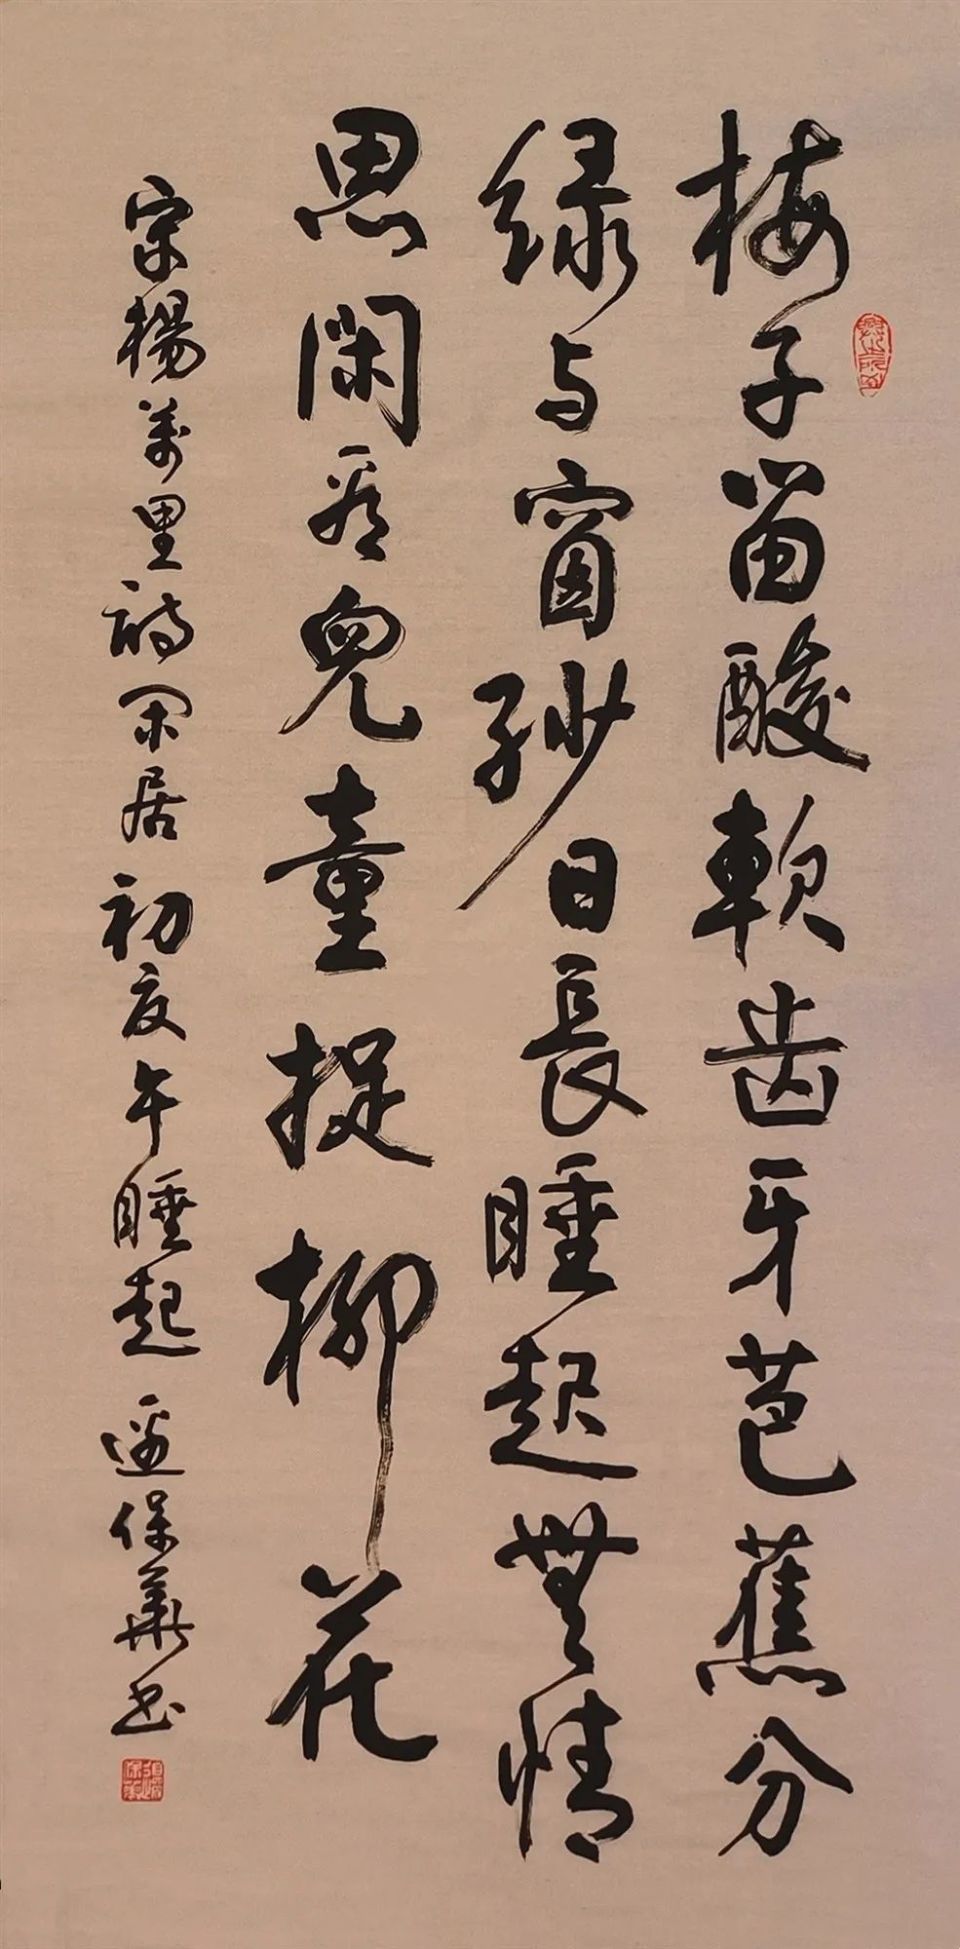 梅子留酸軟齿牙芭蕉分
绿与窗紗日長睡起無情
思闲看兒童捉柳花
宋楊萬里詩闲居初夏午睡起 保華书